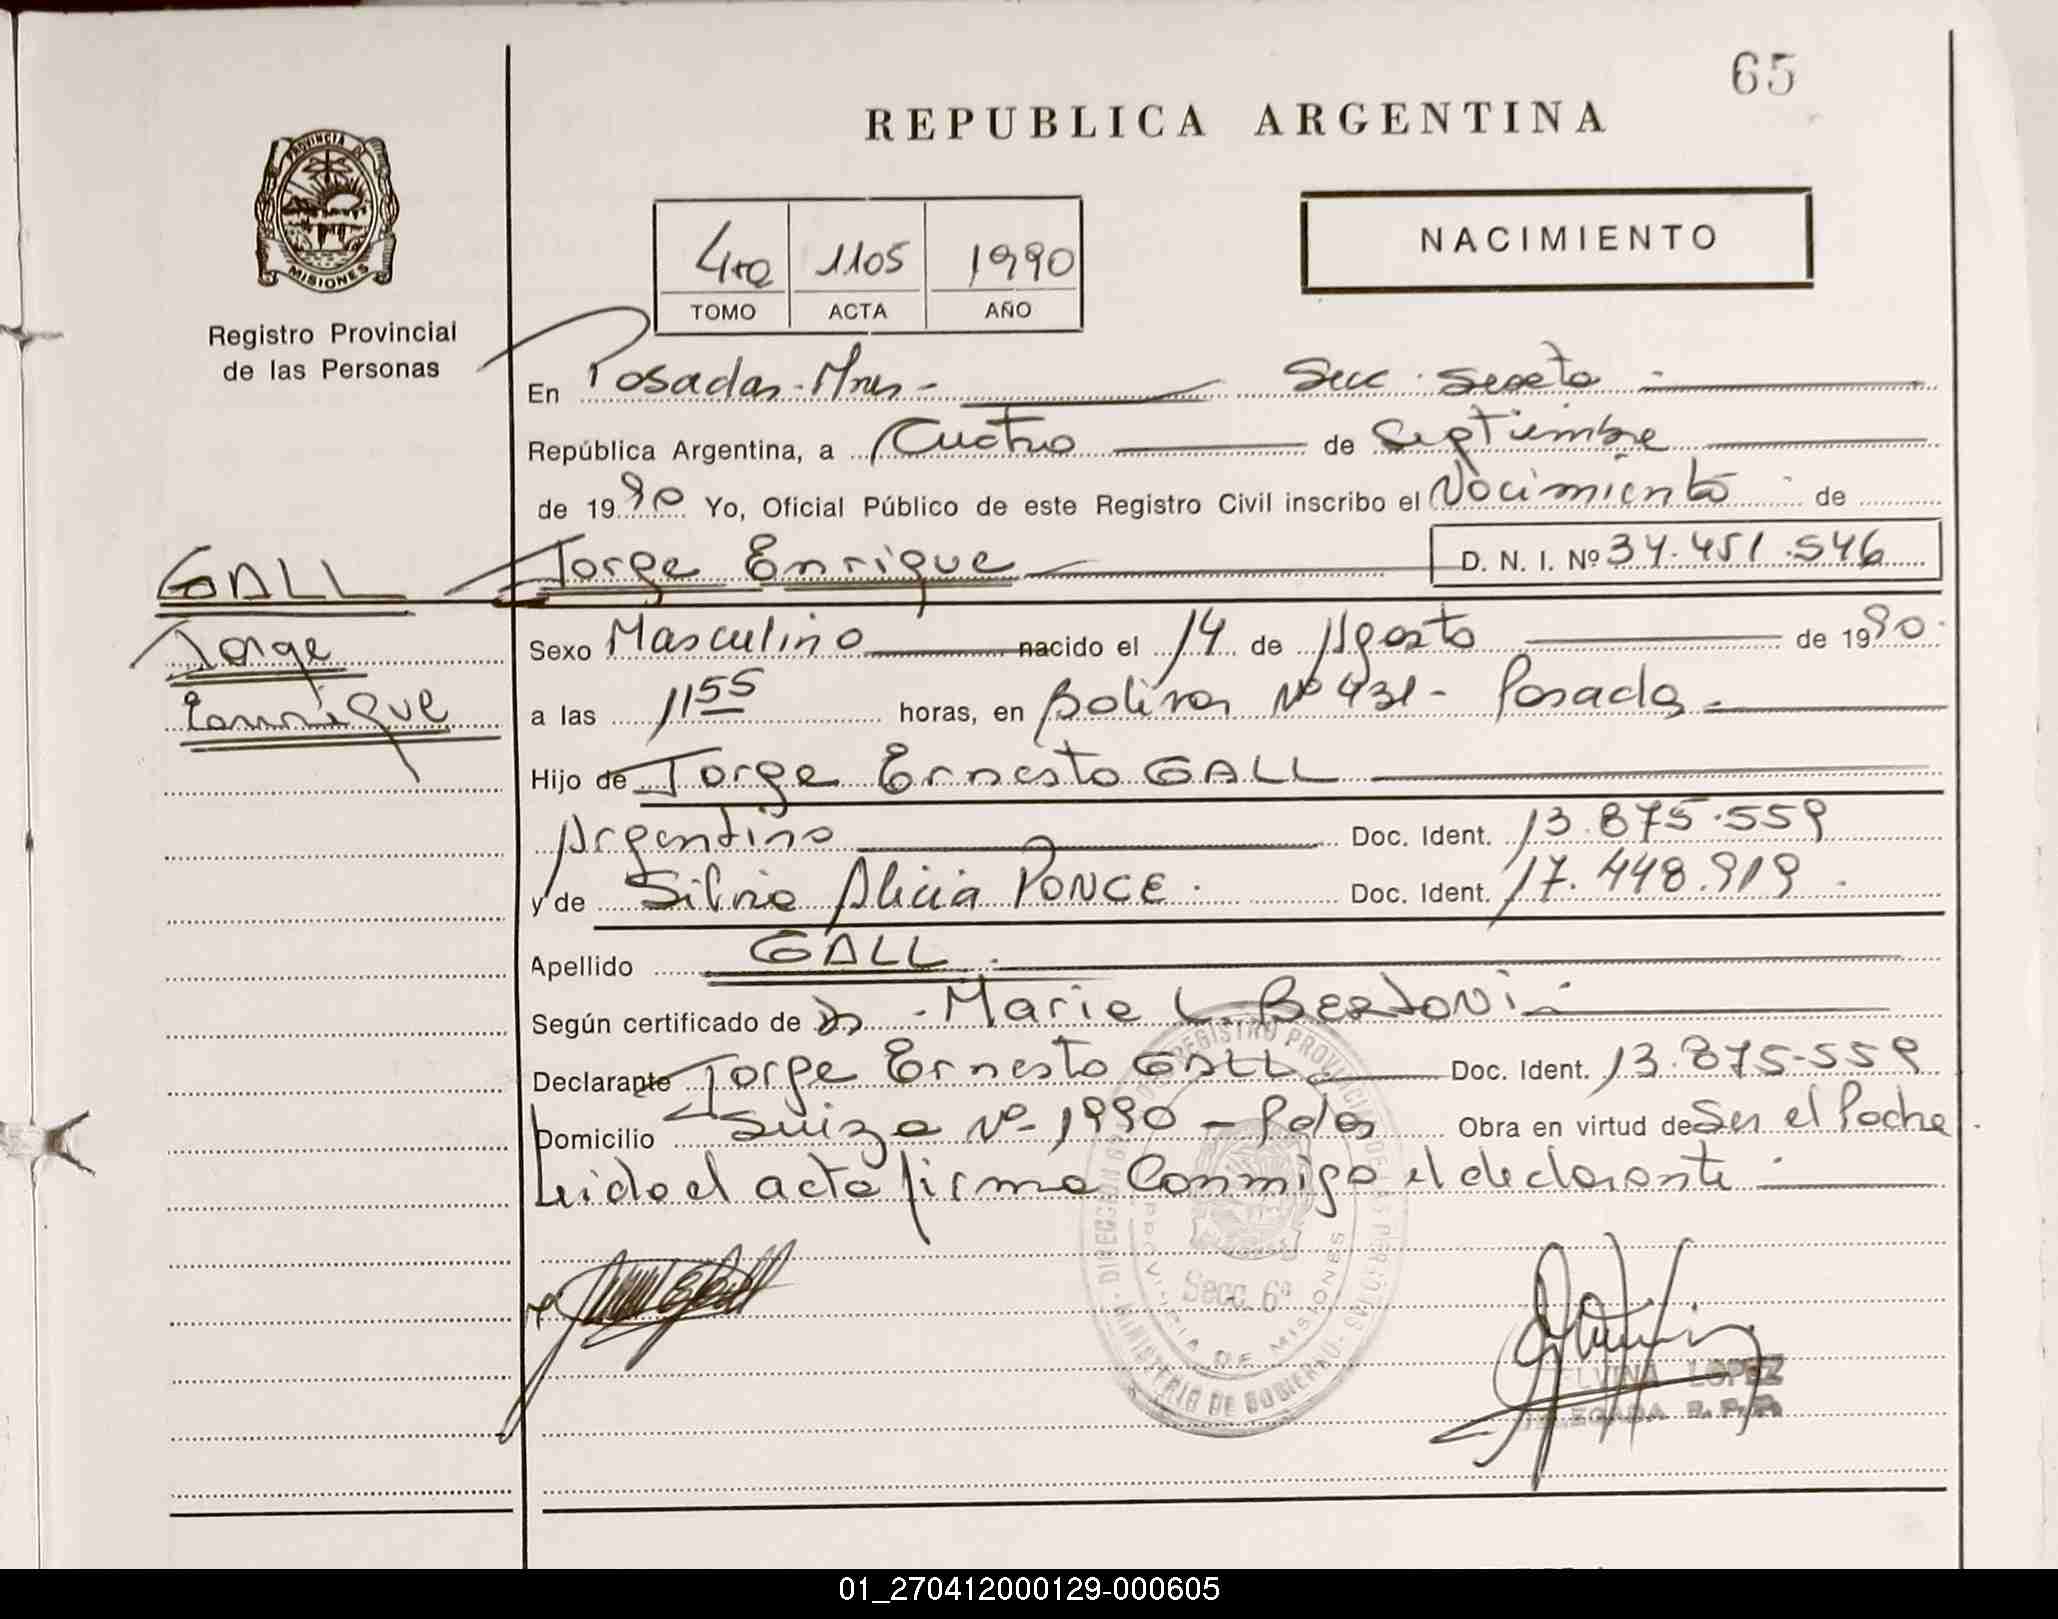 65
REPUBLICA ARGENTINA
PROVINCIA DE
MISIONES
Registro Provincial
de las Personas
4to 1105 1990
TOMO ACTA AÑO
NACIMIENTO
En Posadas - Mnes - Secc. Sexta
República Argentina, a Cuatro de Septiembre
de 1990 Yo, Oficial Público de este Registro Civil inscribo el Nacimiento de
GALL Jorge Enrique D. N. I. Nº 34.451.546
Jorge
Enrique
Sexo Masculino nacido el 14 de Agosto de 1990
a las 11 55 horas, en Bolívar Nº 431 - Posadas
Hijo de Jorge Ernesto GALL
Argentino Doc. Ident. 13.875.559
y de Silvia Alicia PONCE. Doc. Ident. 17.448.919
Apellido GALL.
Según certificado de Maria L. Bertoni
Declarante Jorge Ernesto GALL Doc. Ident. 13.875.559
Domicilio Suiza Nº 1990 - Pdas Obra en virtud de Ser el Padre
Leida el acta firma Conmigo el declarante
DIRECCION REGISTRO PROVINCIAL DE LAS PERSONAS
MINISTERIO DE GOBIERNO
PROVINCIA DE MISIONES
Secc. 6ª
ELVINA LOPEZ
DELEGADA R. P. P.
01_270412000129-000605